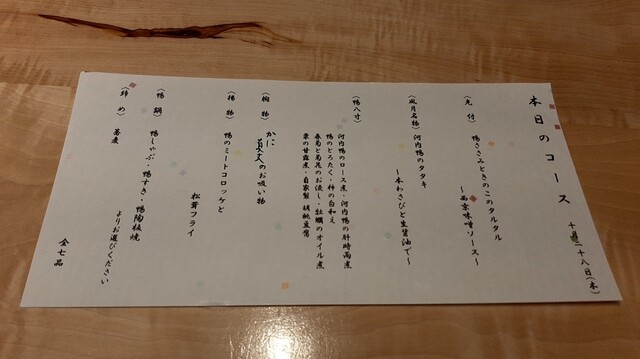 本日のコース
十月二十八日(木)
(先付) 鴨ささみときのこのタルタル
~西京味噌ソース~
(風月名物) 河内鴨のタタキ
~本わさびと生醤油で~
(鴨八寸)
河内鴨のロース煮・河内鴨の肝時雨煮
鴨のどろたく・柿の白和え
春菊と菊花のお浸し・牡蠣のオイル煮
栗の甘露煮・自家製 胡桃豆腐
(椀物) かに真丈のお吸い物
(揚物) 鴨のミートコロッケと
松茸フライ
(鴨鍋) 鴨しゃぶ・鴨すき・鴨陶板焼
よりお選びください
(締め) 蕎麦
全七品